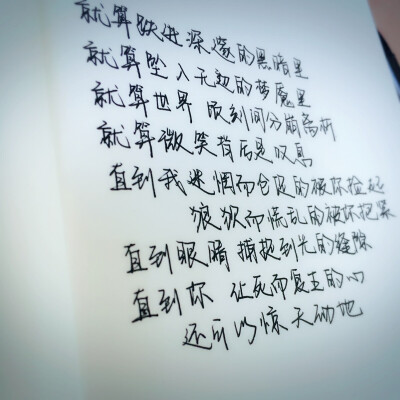 就算跌进深邃的黑暗里
就算坠入无边的梦魇里
就算世界顷刻间分崩离析
就算微笑背后是叹息
直到我迷惘而仓促的被你捡起
狼狈而慌乱的被你把紧
直到眼睛捕捉到光的缝隙
直到你 让死而复生的心
还可以惊天动地